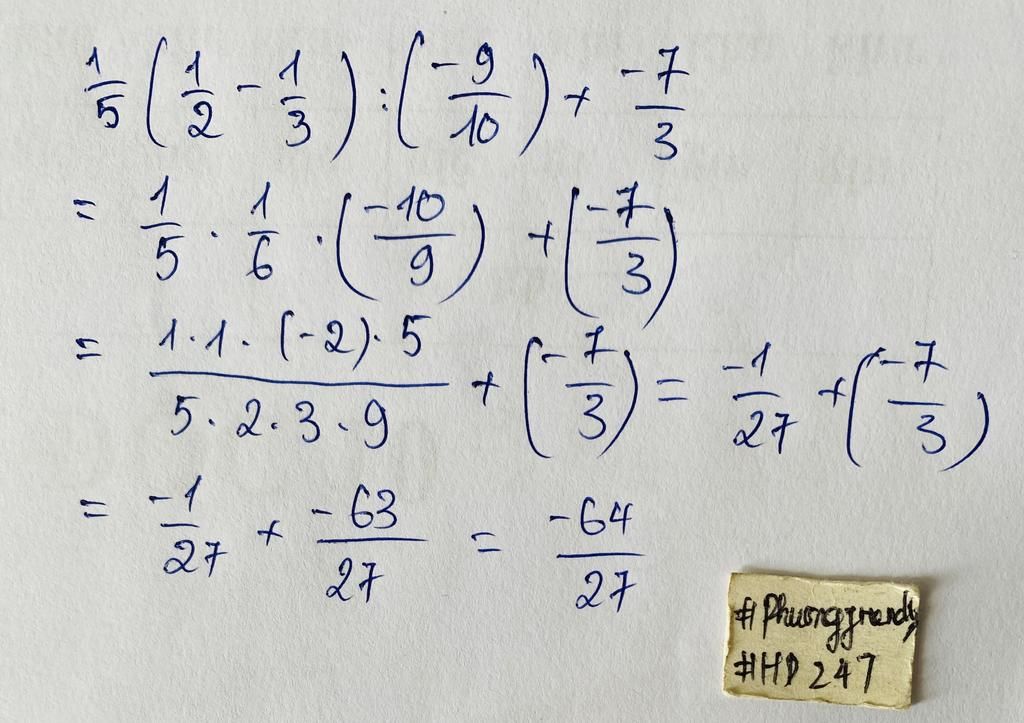 1/5 (1/2 - 1/3) : (-9/10) + -7/3
= 1/5 . 1/6 . (-10/9) + (-7/3)
= 1.1.(-2).5 / 5.2.3.9 + (-7/3) = -1/27 + (-7/3)
= -1/27 + -63/27 = -64/27
#HD 247